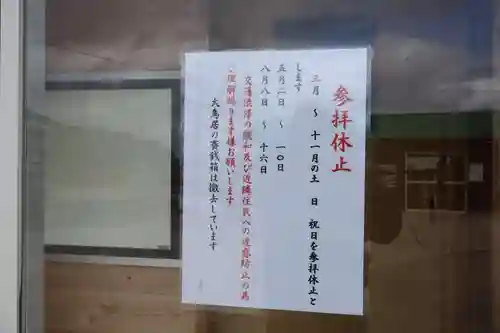 参拝休止
三月 ～ 十一月の土 日 祝日を参拝休止と
します
五月二日 ～ 一〇日
八月八日 ～ 十六日
交通渋滞の緩和及び近隣住民への迷惑防止の為
ご理解賜ります様お願いします
大鳥居の賽銭箱は撤去しています